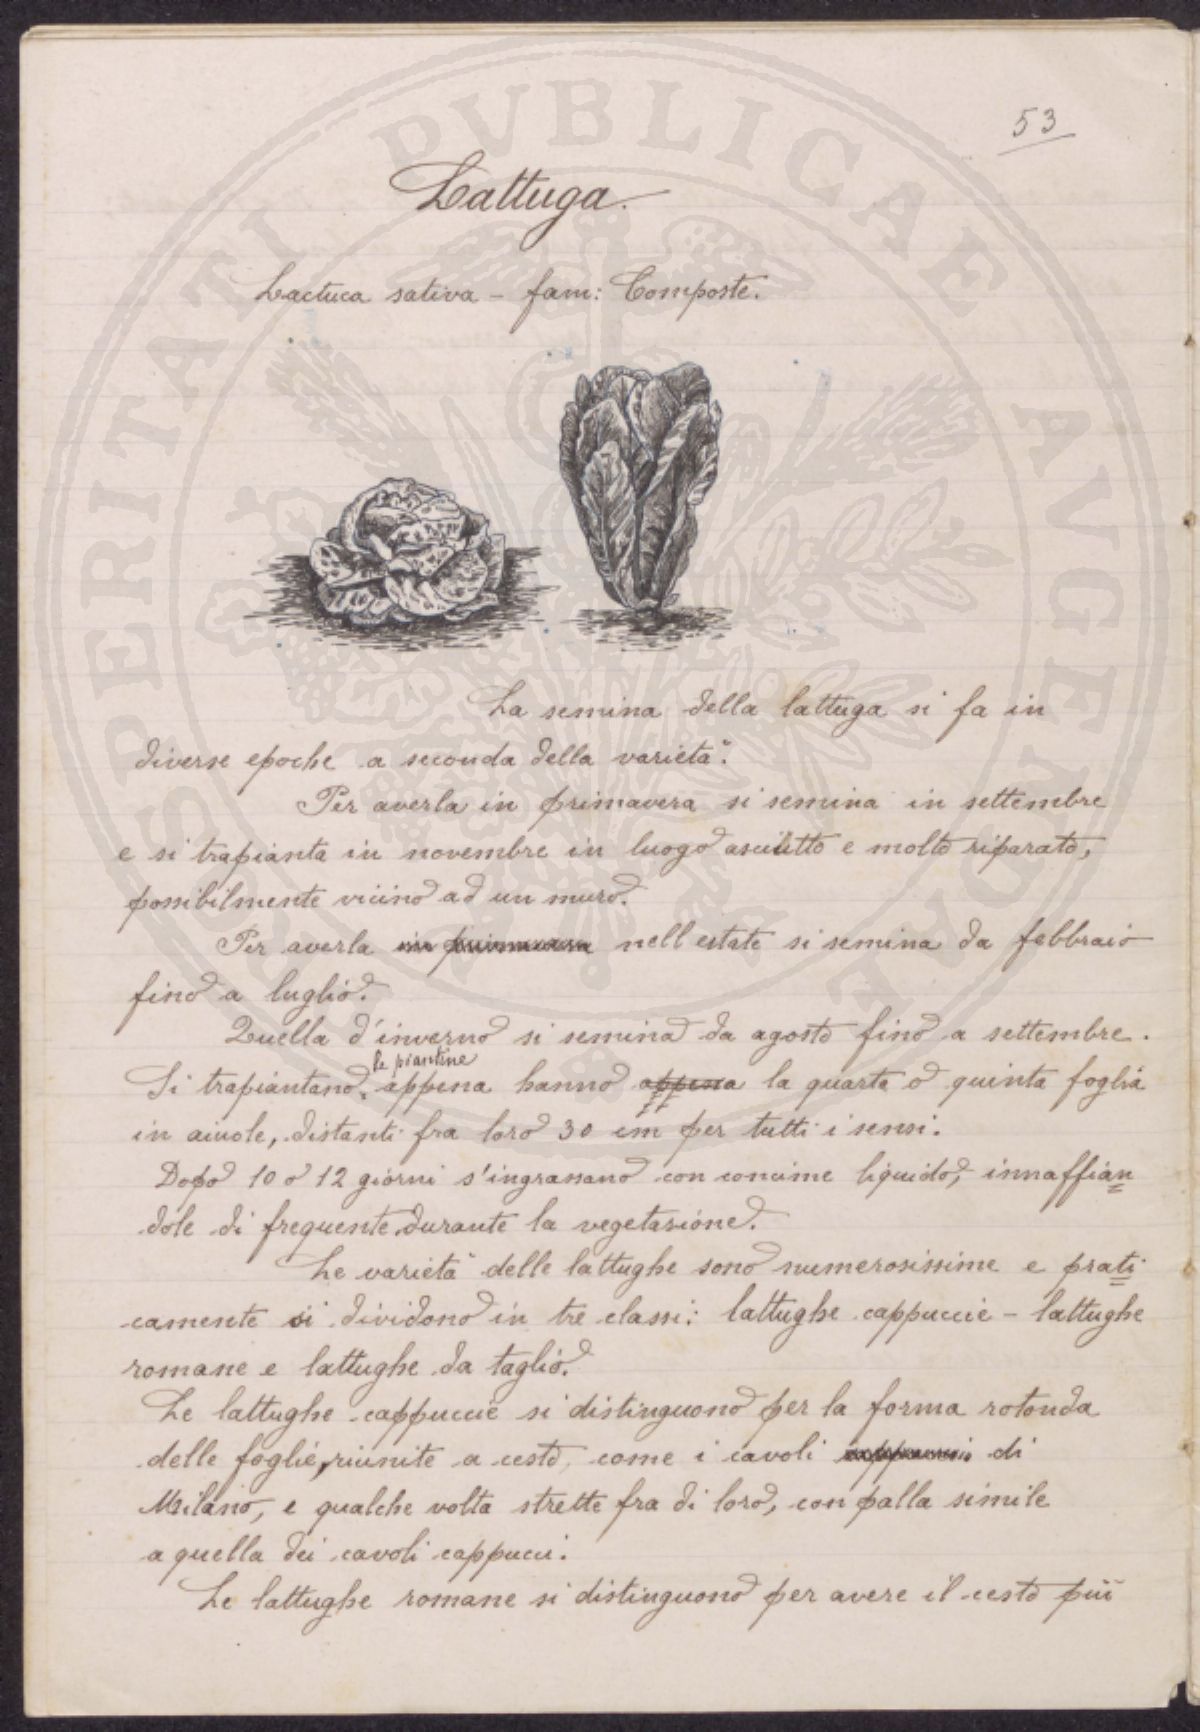 53
Lattuga.
Lactuca sativa – fam: Composte.
La semina della lattuga si fa in
diverse epoche a seconda della varietà.
Per averla in primavera si semina in settembre
e si trapianta in novembre in luogo asciutto e molto riparato,
possibilmente vicino ad un muro.
Per averla in primavera nell'estate si semina da febbraio
fino a luglio.
Quella d'inverno si semina da agosto fino a settembre.
le piantine
Si trapiantano, appena hanno appena la quarta o quinta foglia
in aiuole, distanti fra loro 30 cm per tutti i sensi.
Dopo 10 o 12 giorni s'ingrassano con concime liquido, innaffian
dole di frequente durante la vegetazione.
Le varietà delle lattughe sono numerosissime e prati
camente si dividono in tre classi: lattughe cappuccie – lattughe
romane e lattughe da taglio.
Le lattughe cappuccie si distinguono per la forma rotonda
delle foglie, riunite a cesto, come i cavoli cappucci di
Milano, e qualche volta strette fra di loro, con palla simile
a quella dei cavoli cappucci.
Le lattughe romane si distinguono per avere il cesto più
PVBLICAE AVGENDAE
PROSPERITATI